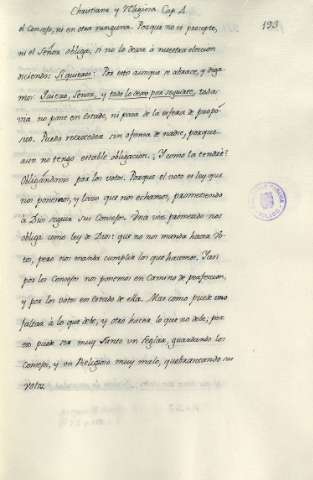 Christiana y Religiosa Cap. 4.
193
el Consejo, ni en otro ninguno. Porque no es precepto,
ni el Señor obliga, si no lo dexa à nuestra eleccion
diciendo: Si quieres: Por esto aunque se abrace, y diga
mos: Quiero, Señor, y todo lo dexo por seguirte, toda
via no pone en Estado, ni pasa de la esfera de propó-
sito. Puedo retroceder sin afrenta de nadie, porque
aun no tengo estable obligacion. Y como la tendré?
Obligandome por los votos. Porque el voto es ley que
nos ponemos, y lazo que nos echamos, prometiendo
à Dios seguir sus Consejos. Una vez prometido nos
obliga como ley de Dios: que no nos manda hacer Vo-
to, pero nos manda cumplir los que hacemos. Y asi
por los Consejos nos ponemos en Camino de perfeccion,
y por los Votos en Estado de ella. Mas como puede uno
faltar à lo que debe, y otro hacer lo que no debe; por
eso puede ser muy Santo un Seglar, guardando los
Consejos, y un Religioso muy malo, quebrantando sus
Votos.